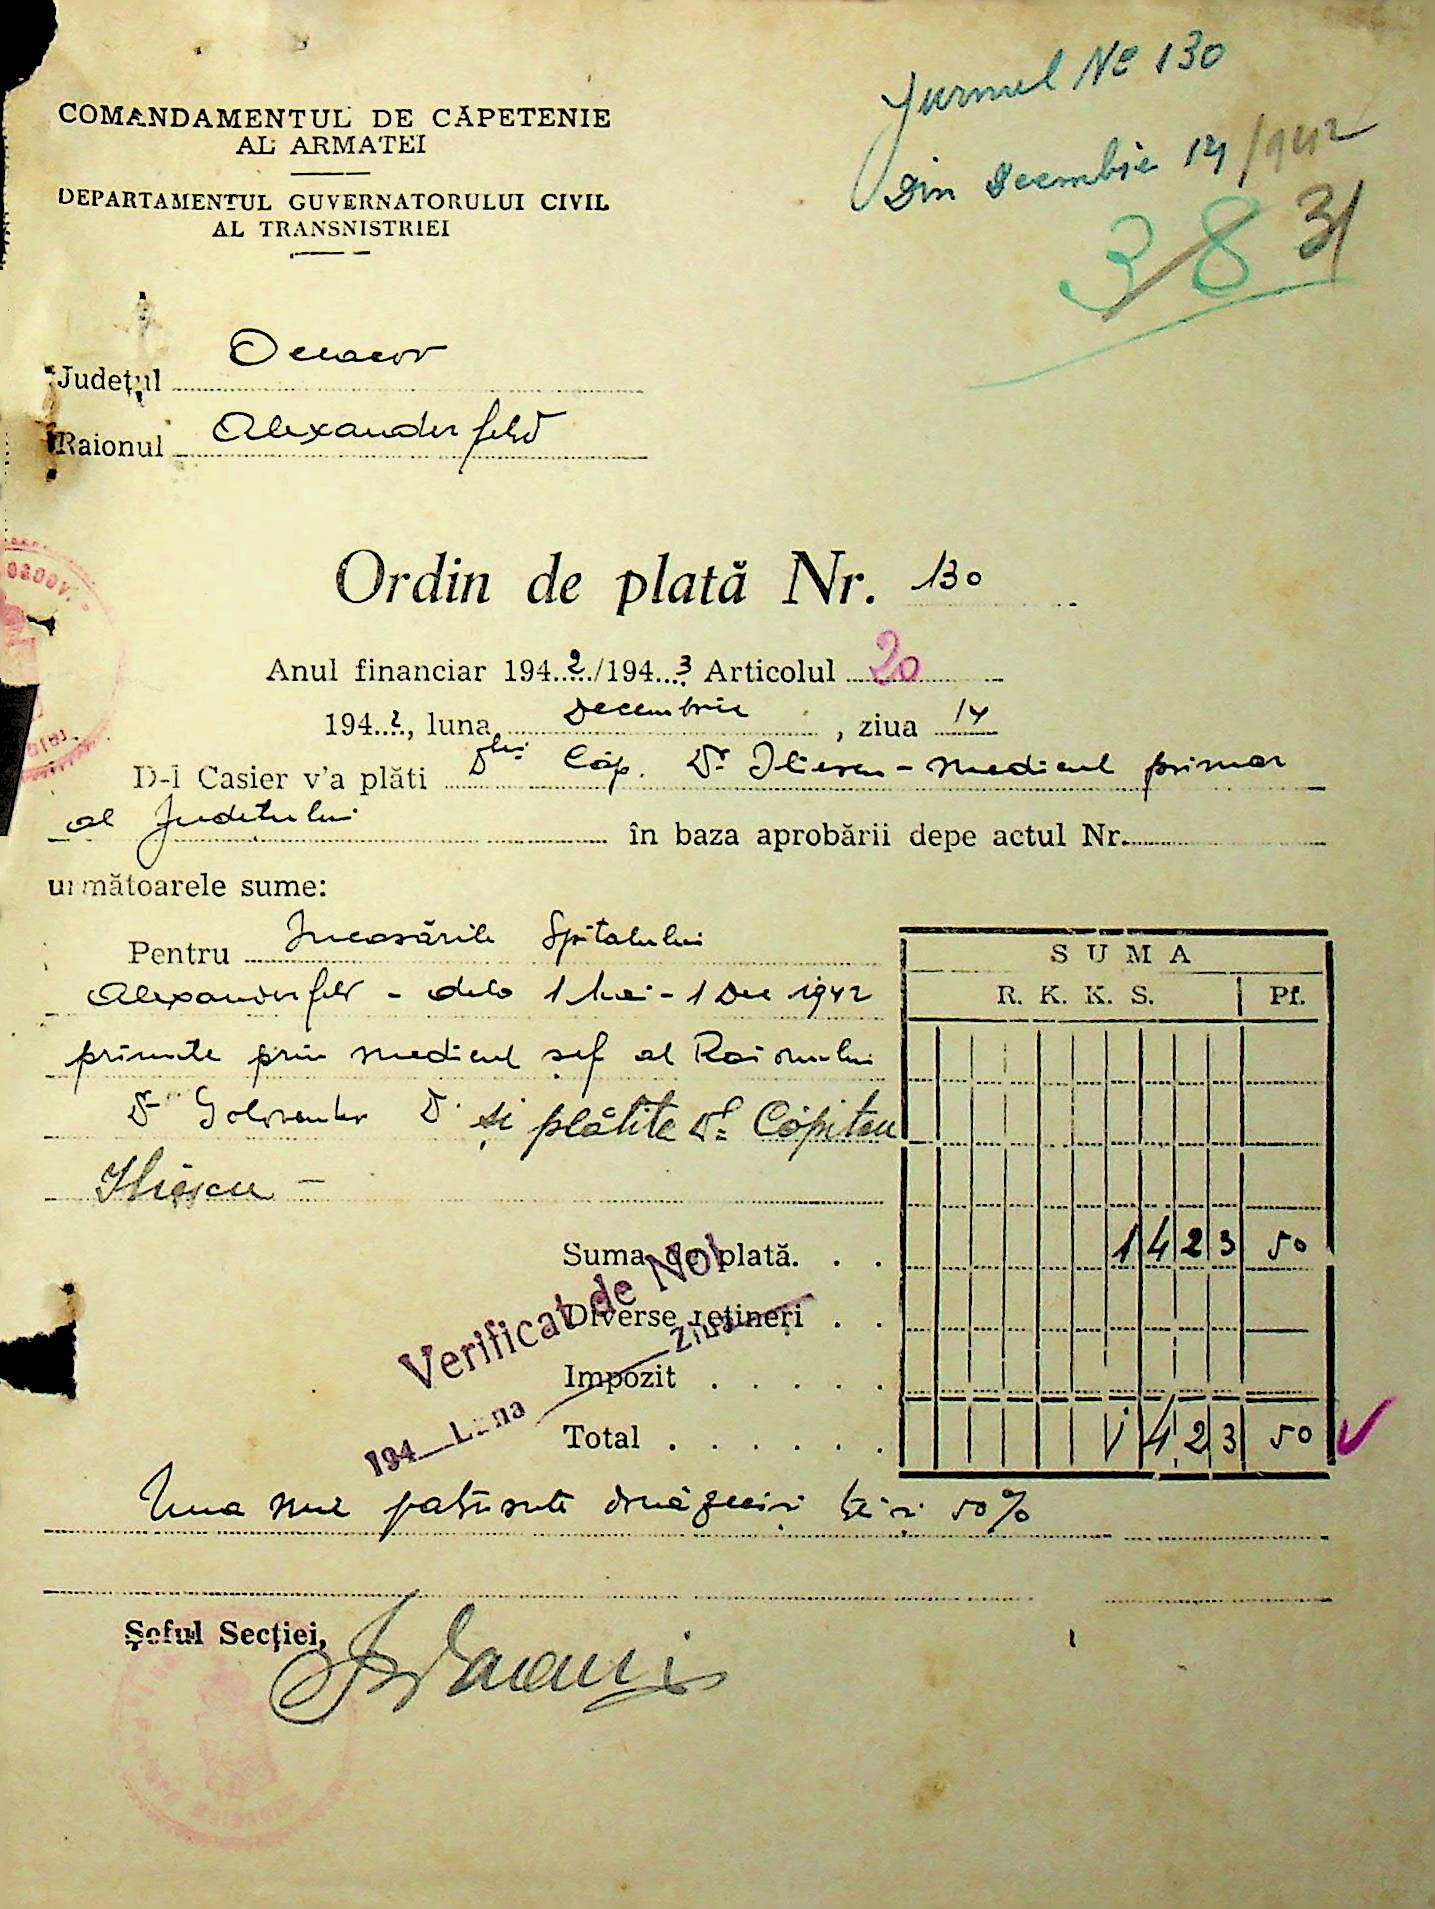 Jurnul № 130
Din Decembrie 14/1942
38 31
COMANDAMENTUL DE CĂPETENIE
AL ARMATEI
DEPARTAMENTUL GUVERNATORULUI CIVIL
AL TRANSNISTRIEI
Județul Oceacov
Raionul Alexanderfeld
Ordin de plată Nr. 130
Anul financiar 1942/1943 Articolul 20
1942, luna Decembrie, ziua 14
D-l Casier v'a plăti Dlui Cap. Dr Iliescu - medicul primar
al Județului în baza aprobării depe actul Nr.
următoarele sume:
Pentru Incasările Spitalului
Alexanderfeld - dela 1 Mai - 1 Dec 1942
primite prin medicul șef al Raionului
Dr D. și plătite Dl Căpitan
Iliescu -
SUMA
R. K. K. S. Pf.
Suma de plată. . . 1423 50
Diverse rețineri . .
Impozit . . . . .
Total . . . . . . 1423 50
Verificat de Noi
194 Luna Ziua
Una mie patrusute douăzeci și trei și 50%
Șeful Secției,